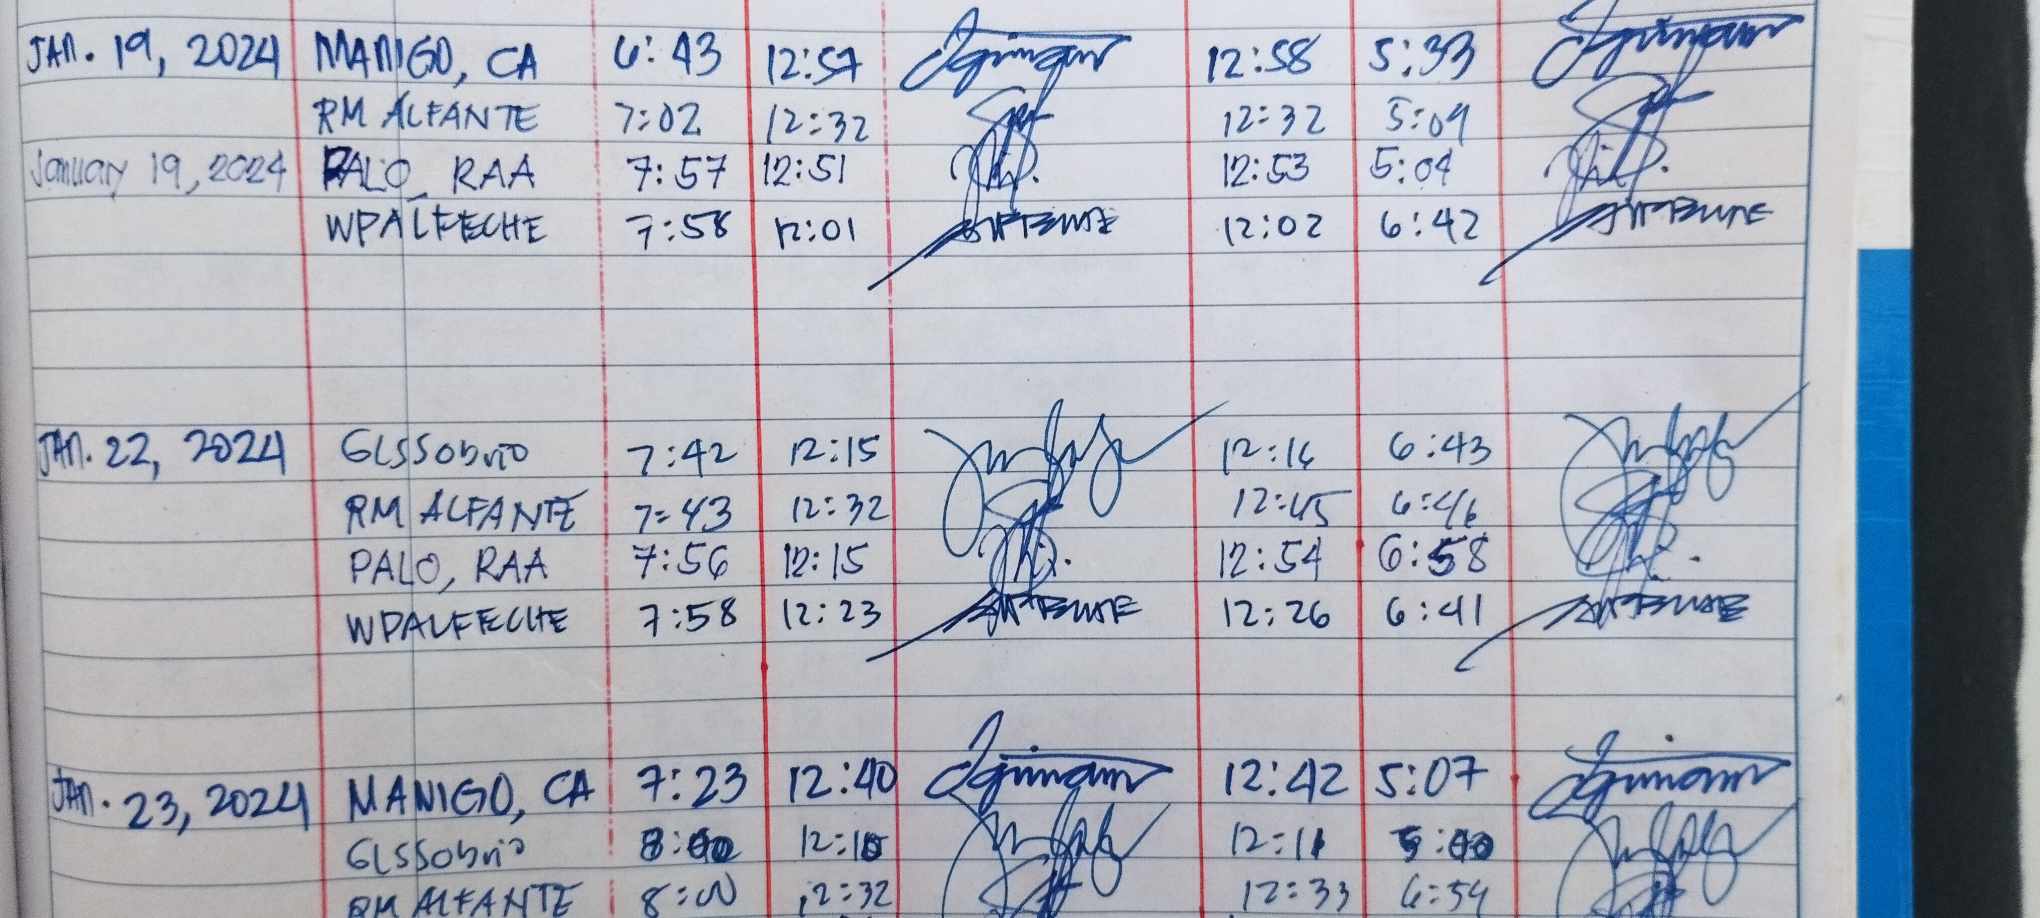 JAN. 19, 2024 MANIGO, CA 6:43 12:57 12:58 5:33
RM ALFANTE 7:02 12:32 12:32 5:09
January 19, 2024 PALO, RAA 7:57 12:51 12:53 5:04
WPALFECHE 7:58 12:01 12:02 6:42
JAN. 22, 2024 GLSSobrio 7:42 12:15 12:16 6:43
RM ALFANTE 7:43 12:32 12:45 6:46
PALO, RAA 7:56 12:15 12:54 6:58
WPALFECHE 7:58 12:23 12:26 6:41
JAN. 23, 2024 MANIGO, CA 7:23 12:40 12:42 5:07
GLSSobrio 8:00 12:10 12:11 5:00
RM ALFANTE 8:00 12:32 12:33 6:54